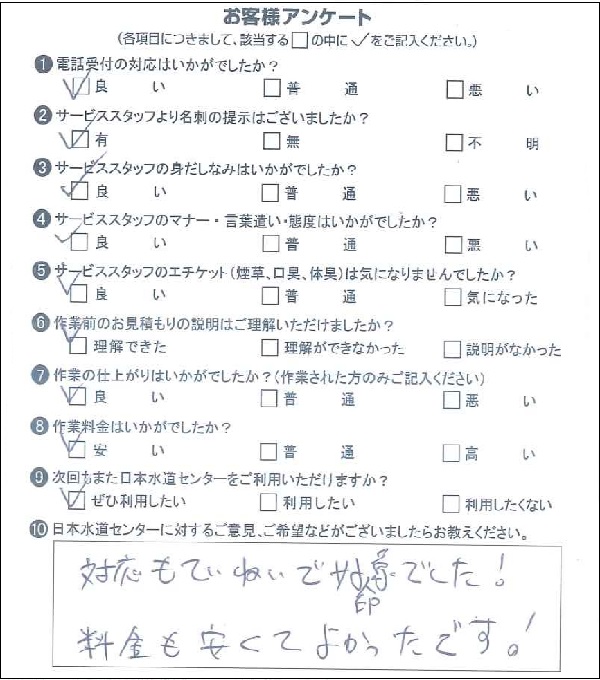 お客様アンケート
(各項目につきまして、該当する□の中に✓をご記入ください。)
❶ 電話受付の対応はいかがでしたか?
☑良い □普通 □悪い
❷ サービススタッフより名刺の提示はございましたか?
☑有 □無 □不明
❸ サービススタッフの身だしなみはいかがでしたか?
☑良い □普通 □悪い
❹ サービススタッフのマナー・言葉遣い・態度はいかがでしたか?
☑良い □普通 □悪い
❺ サービススタッフのエチケット(煙草、口臭、体臭)は気になりませんでしたか?
☑良い □普通 □気になった
❻ 作業前のお見積もりの説明はご理解いただけましたか?
☑理解できた □理解ができなかった □説明がなかった
❼ 作業の仕上がりはいかがでしたか?(作業された方のみご記入ください)
☑良い □普通 □悪い
❽ 作業料金はいかがでしたか?
☑安い □普通 □高い
❾ 次回もまた日本水道センターをご利用いただけますか?
☑ぜひ利用したい □利用したい □利用したくない
❿ 日本水道センターに対するご意見、ご希望などがございましたらお教えください。
対応もていねいで好象でした!
印
料金も安くてよかったです!